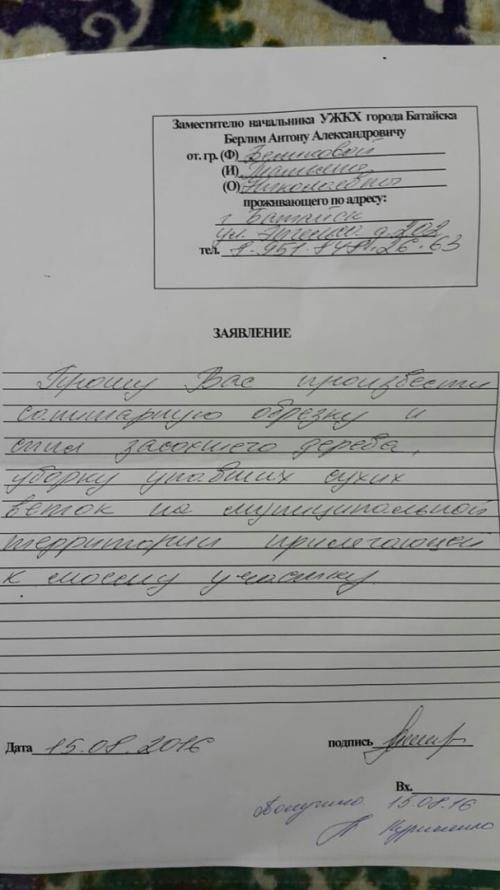 Заместителю начальника УЖКХ города Батайска
Берлим Антону Александровичу
от. гр. (Ф)
(И) Татьяна
(О) Николаевна
проживающего по адресу:
г Батайск
ул. д. 202
тел. 8-951-848-26-63
ЗАЯВЛЕНИЕ
Прошу Вас произвести
санитарную обрезку и
спил засохшего дерева,
уборку упавших сухих
веток на муниципальной
территории прилегающей
к моему участку.
Дата 15.08.2016
подпись
Вх.
Получено 15.08.16